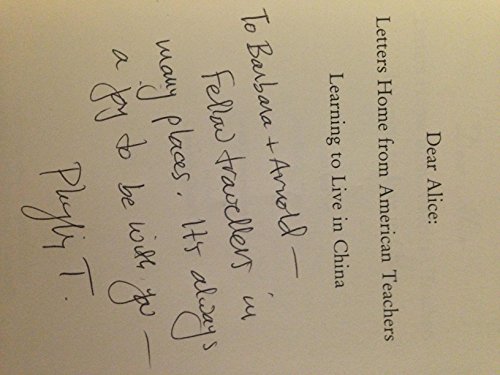 Dear Alice:
Letters Home from American Teachers
Learning to Live in China
To Barbara + Arnold —
Fellow travellers in
many places. It's always
a joy to be with you —
Phyllis T.